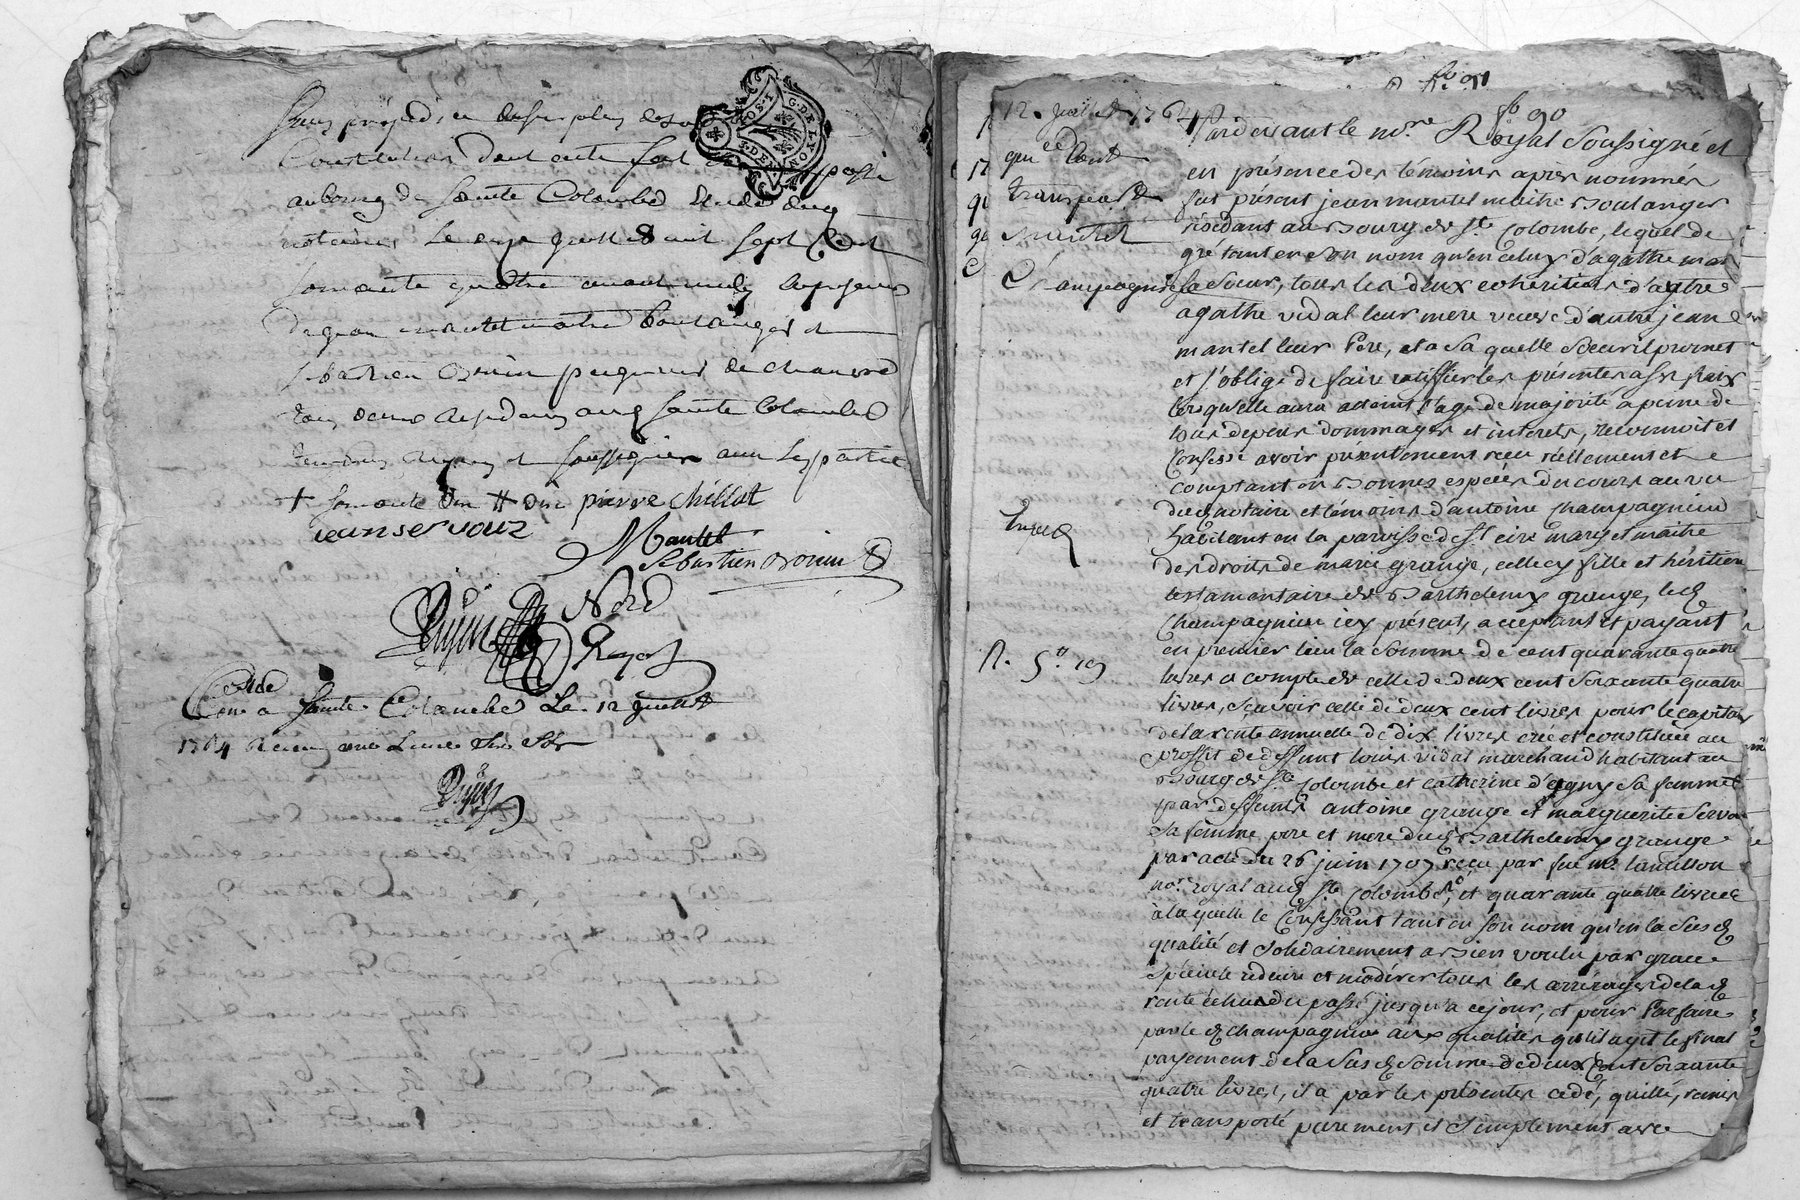 Sans préjudice
Constitution dont acte fait et passé
au bourg de Sainte Colombe
notaire le onze juillet mil sept cent
soixante quatre avant midy en présence
de jean mantel maitre boulanger et
sebastien bonin peigneur de chanvre
tous deux residans aud sainte Colombe
temoins requis et soussignés avec les parties
+ soixante pierre chillat
jean servoux
Mantel
Sebastien bonin
Dupuis
Nore
Royal
Con^{lé} a Sainte Colombe Le 12 Juillet
1764 Reçu
Dupuis
G. DE LYON
f^o 91
f^o 90
12. Juillet 1764
quittance
transport
Mantel
Champagnieu
Pardevant le no^{re} Royal Soussigné et
en présence des témoins après nommés
fut présent jean mantel maitre boulanger
résidant au Bourg de S^{te} Colombe, lequel de
gré tant en son nom qu'en celuy d'agathe man
sa soeur, tous les deux cohéritiers d'autre
agathe vidal leur mere veuve d'autre jean
mantel leur Pere, et a la quelle Soeur il promet
et s'oblige de faire ratiffier les présentes a ses fraix
lorsqu'elle aura atteint l'age de majorité a peine de
tous depens dommages et interets, reconnoit et
Confesse avoir présentement reçu réellement et
comptant en bonnes espéces du cours au vu
du notaire et témoins d'antoine champagnieu
habitant en la paroisse de S^t cire mary et maitre
des droits de marie grange, celle cy fille et héritiere
testamentaire de Barthelemy grange, led
Champagnieu icy présent, acceptant et payant
en premier lieu la Somme de cent quarante quatre
livres a compte de celle de deux cent soixante quatre
R. 5^{tt} 19
livres, sçavoir celle de deux cent livres pour le capital
de la rente annuelle de dix livres creé et constituée au
proffit de deffunt louis vidal marchand habitant au
Bourg de S^{te} Colombe et catherine d'egny sa femme
par deffunts antoine grange et marguerite Servo
sa femme pere et mere dud Barthelemy grange
par acte du 26 juin 1707 reçu par feu m^e landillon
no^{re} royal aud S^{te} Colombe, et quarante quatre livres
à laquelle le Confessant tant en son nom qu'en la susd
qualité et Solidairement a bien voulu par grace
spéciale réduire et modérer tous les arrérages de lad
rente échus du passé jusqu'a ce jour, et pour Parfaire
par led champagnieu aux qualités qu'il agit le final
payement de la Susd Somme de deux Cent soixante
quatre livres, il a par les présentes cedé, quitté, remis
et transporté purement et Simplement avec